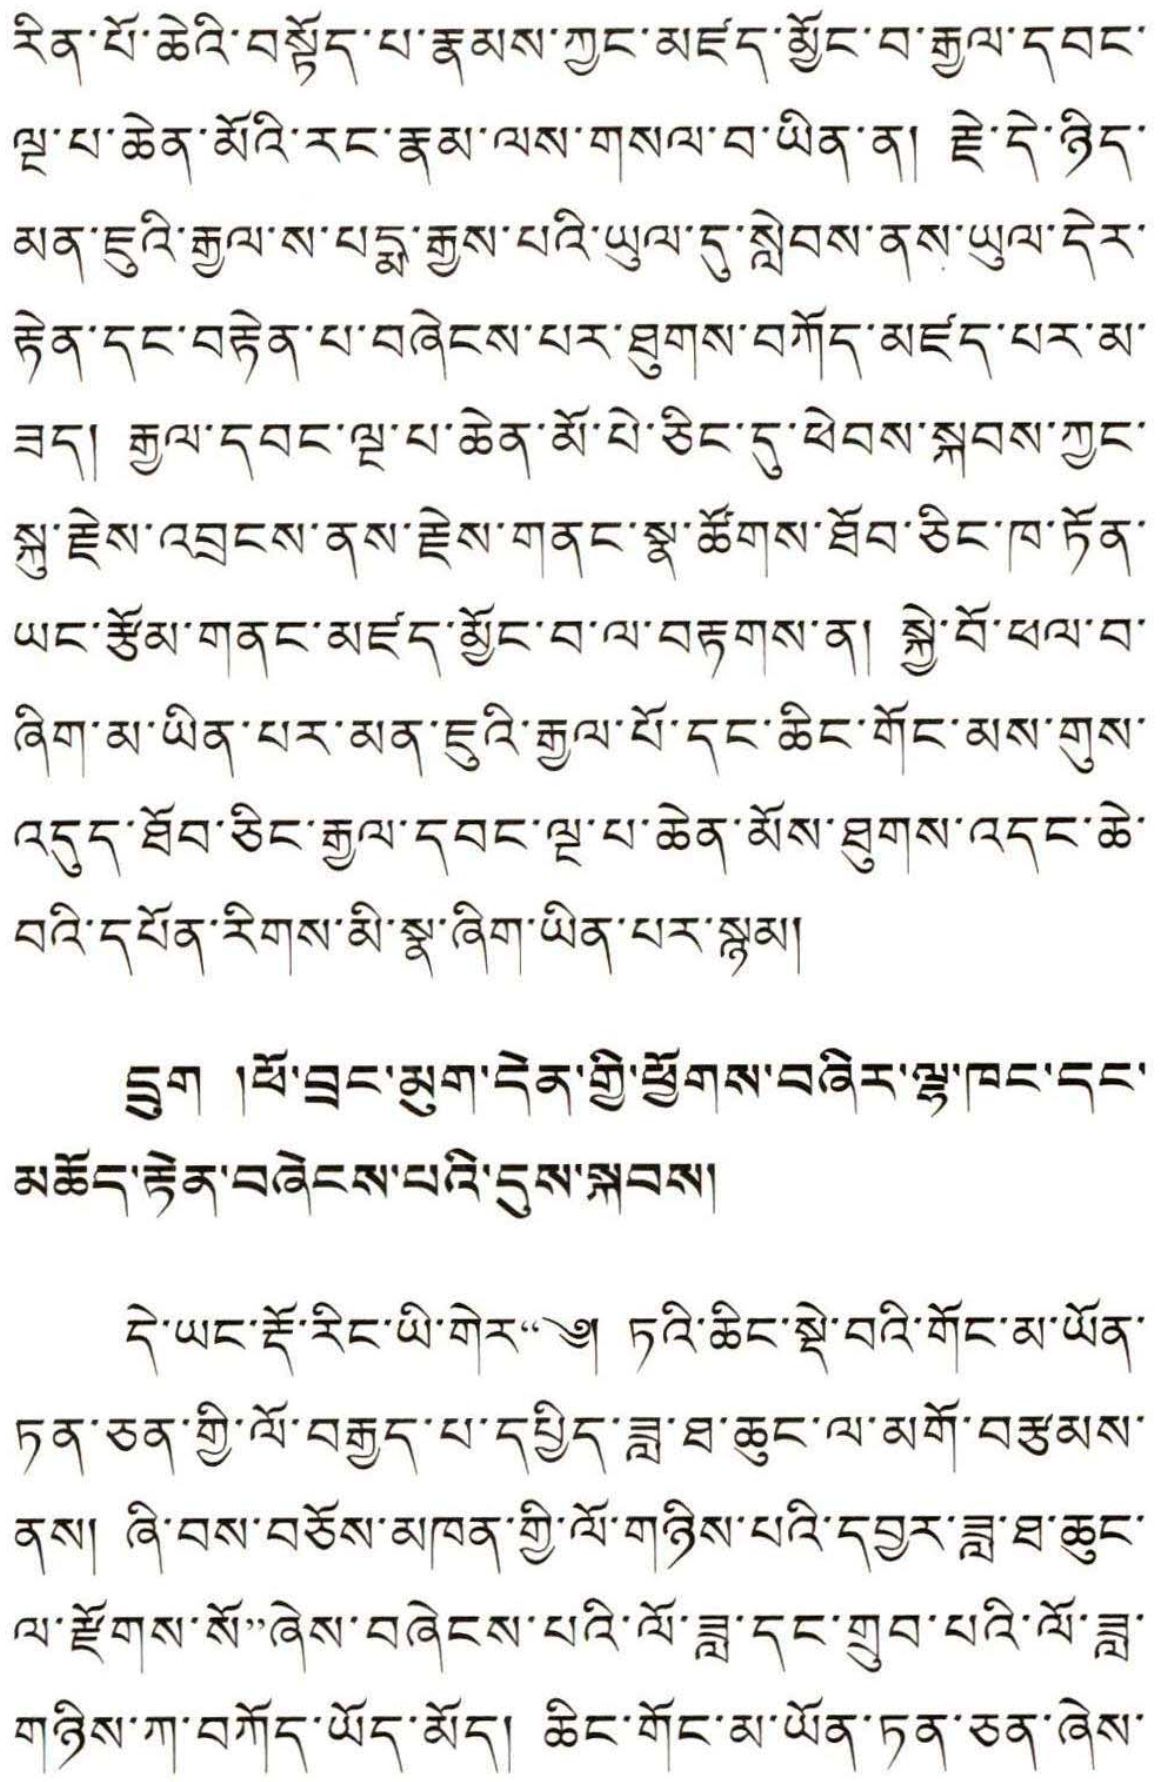 རིན་པོ་ཆེའི་བསྟོད་པ་རྣམས་ཀྱང་མཛད་མྱོང་བ་རྒྱལ་དབང་
ལྔ་པ་ཆེན་མོའི་རང་རྣམ་ལས་གསལ་བ་ཡིན་ན། རྗེ་དེ་ཉིད་
མན་ཇུའི་རྒྱལ་ས་པདྨ་རྒྱས་པའི་ཡུལ་དུ་སླེབས་ནས་ཡུལ་དེར་
རྟེན་དང་བརྟེན་པ་བཞེངས་པར་ཐུགས་བཀོད་མཛད་པར་མ་
ཟད། རྒྱལ་དབང་ལྔ་པ་ཆེན་མོ་པེ་ཅིང་དུ་ཕེབས་སྐབས་ཀྱང་
སྐུ་རྗེས་འབྲངས་ནས་རྗེས་གནང་སྣ་ཚོགས་ཐོབ་ཅིང་ཁ་ཏོན་
ཡང་རྩོམ་གནང་མཛད་མྱོང་བ་ལ་བརྟགས་ན། སྐྱེ་བོ་ཕལ་བ་
ཞིག་མ་ཡིན་པར་མན་ཇུའི་རྒྱལ་པོ་དང་ཆིང་གོང་མས་གུས་
འདུད་ཐོབ་ཅིང་རྒྱལ་དབང་ལྔ་པ་ཆེན་མོས་ཐུགས་འདང་ཆེ་
བའི་དཔོན་རིགས་མི་སྣ་ཞིག་ཡིན་པར་སྙམ།
དྲུག །ཕོ་བྲང་མུག་དེན་གྱི་ཕྱོགས་བཞིར་ལྷ་ཁང་དང་
མཆོད་རྟེན་བཞེངས་པའི་དུས་སྐབས།
དེ་ཡང་རྡོ་རིང་ཡི་གེར་“༄། ཏའི་ཆིང་སྡེ་བའི་གོང་མ་ཡོན་
ཏན་ཅན་གྱི་ལོ་བརྒྱད་པ་དཔྱིད་ཟླ་ཐ་ཆུང་ལ་མགོ་བརྩམས་
ནས། ཞི་བས་བཅོས་མཁན་གྱི་ལོ་གཉིས་པའི་དབྱར་ཟླ་ཐ་ཆུང་
ལ་རྫོགས་སོ”ཞེས་བཞེངས་པའི་ལོ་ཟླ་དང་གྲུབ་པའི་ལོ་ཟླ་
གཉིས་ཀ་བཀོད་ཡོད་མོད། ཆིང་གོང་མ་ཡོན་ཏན་ཅན་ཞེས་